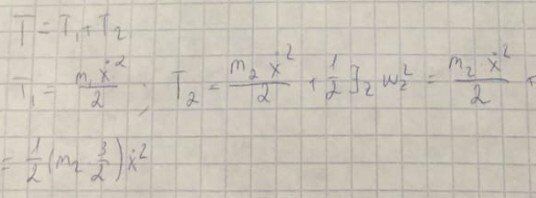 T = T₁ + T₂
T₁ = m₁ẋ²/2 ; T₂ = m₂ẋ²/2 + 1/2 J₂ ω₂² = m₂ẋ²/2 +
= 1/2 (m₂ 3/2) ẋ²